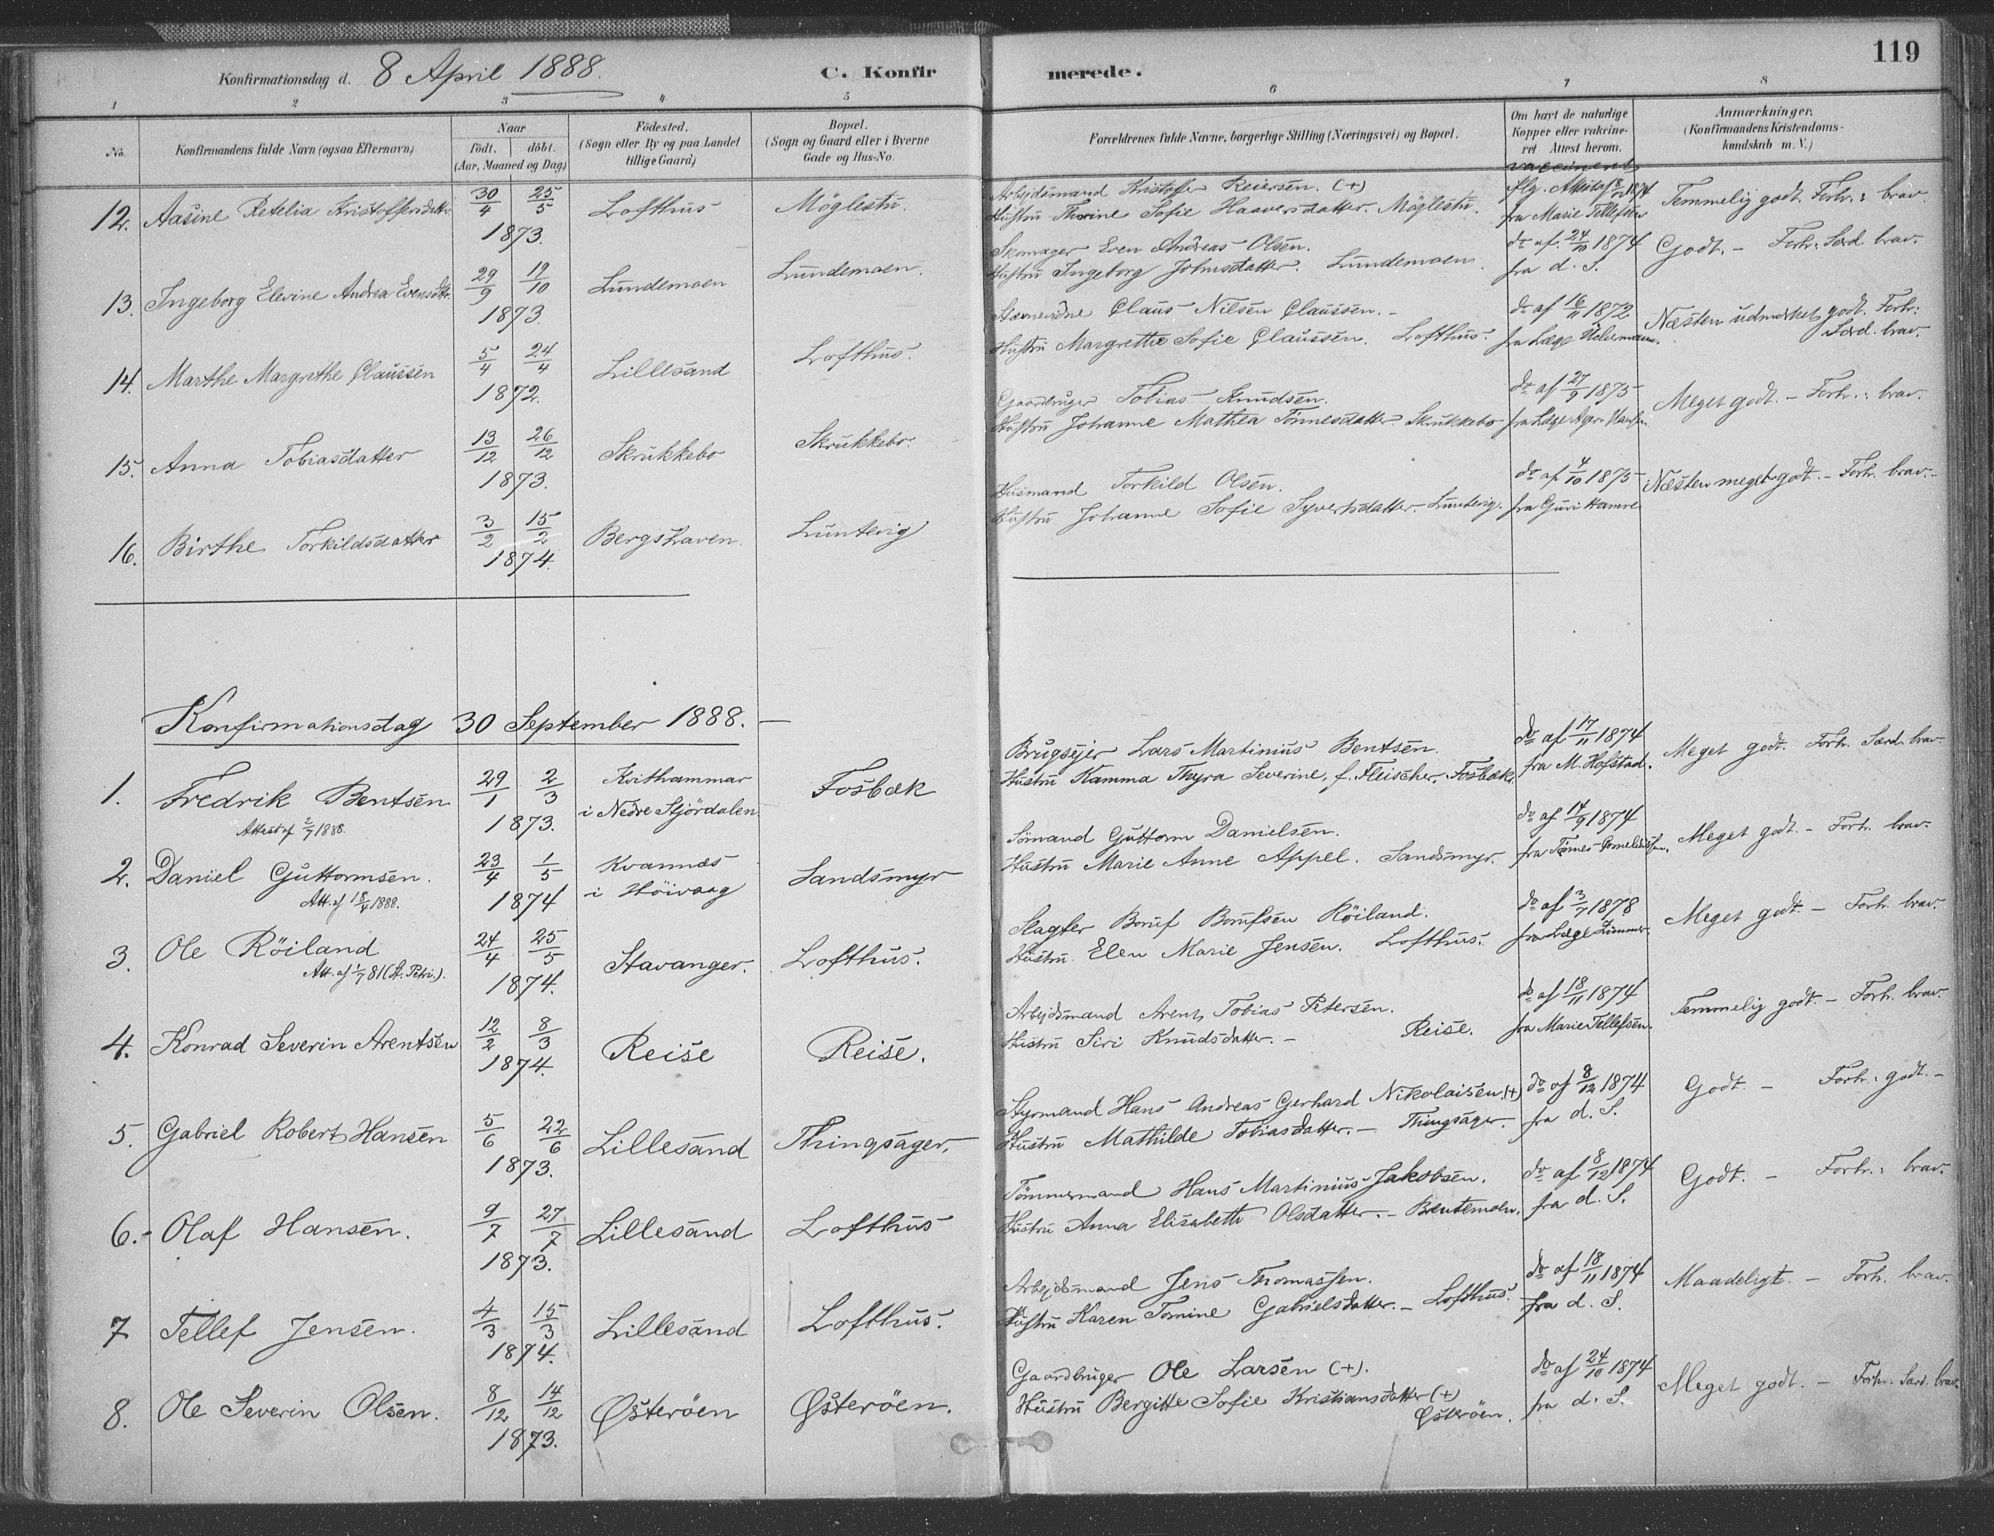 119
Konfirmationsdag d. 8 April 1888. C. Konfirmerede.
1 2 3 4 5 6 7 8
No. Konfirmandens fulde Navn (ogsaa Efternavn) Naar født. døbt. (Aar, Maaned og Dag) Födested. (Sogn eller By og paa Landet tillige Gaard) Bopæl. (Sogn og Gaard eller i Byerne Gade og Hus-No. Forældrenes fulde Navne, borgerlige Stilling (Næringsvei) og Bopæl. Om havt de naturlige Kopper eller vakcineret Attest herom. Anmærkninger. (Konfirmandens Kristendomskundskab m. V.)
vaccineret
12. Aasine Retelia Kristoffersdatter 30/4 25/5 1873. Lofthus Möglestu. Arbejdsmand Kristofer Reiersen. (+)
Hustru Thrine Sofie Haaversdatter. Möglestu. flg. Attest af 1874 fra Marie Tellefsen Temmelig godt. Forh.: brav.
13. Ingeborg Elevine Andrea Evensdtr. 29/9 19/10 1873. Lundemoen Lundemoen. Skomager Even Andreas Olsen.
Hustru Ingeborg Johnsdatter. Lundemoen. do af 24/10 1874 fra d. S. Godt. – Forh. Særd. brav.
14. Marthe Margrethe Claussen 5/4 24/4 1872. Lillesand Lofthus. Claus Nilsen Claussen. –
Hustru Margrethe Sofie Claussen. Lofthus. do af 16/11 1872 fra Læge Næsten udmærket godt. Forh: Særd. brav.
15. Anna Tobiasdatter 13/12 26/12 1873. Skrukkebo Skrukkebo. Gaardbruger Tobias Knudsen.
Hustru Johanne Mathea Tönnesdatter Skrukkebo do af 27/9 1875 fra Læge Meget godt. – Forh.: brav.
16. Birthe Torkildsdatter 3/2 15/2 1874. Bergshaven. Luntevig Husmand Torkild Olsen.
Hustru Johanne Sofie Syvertsdatter. Luntevig. do af 4/10 1875 fra Guri Hamre Næsten meget godt. – Forh. brav. –
Konfirmationsdag 30 September 1888. –
1. Fredrik Bentsen 29/1 2/3 1873. Kvithammar i Nedre Stjördalen Fosbæk Brugsejer Lars Martinius Bentsen.
Attest af 2/7 1888.
Hustru Kamma Thyra Severine, f. Fleischer. Fosbæk. do af 17/11 1874 fra M. Hofstad. Meget godt. Forh. Særd. brav.
2. Daniel Guttormsen. 23/4 1/5 1874 Kvannes i Höivaag Sandsmyr Sömand Guttorm Danielsen.
Att. af 18/4 1888.
Hustru Marie Anne Appel. Sandsmyr. do af 14/9 1874 fra Meget godt. – Forh. brav.
3. Ole Röiland 24/4 25/5 1874. Stavanger. Lofthus. Slagter Röiland.
Att. af 1/7 81 (St. Petri).
Hustru Elen Marie Jensen. Lofthus. do af 3/7 1878 fra Læge Meget godt. – Forh. brav.
4. Konrad Severin Arentsen 12/2 8/3 1874. Reise Reise. Arbejdsmand Arent Tobias Petersen.
Hustru Siri Knudsdatter. – Reise. do af 18/11 1874 fra Marie Tellefsen. Temmelig godt. – Forh. brav.
5. Gabriel Robert Hansen 5/6 22/6 1873. Lillesand Thingsager. Styrmand Hans Andreas Gerhard Nikolaisen. (+)
Hustru Mathilde Tobiasdatter. – Thingsager. do af 8/12 1874 fra d. S. Godt. – Forh.: godt. –
6. - Olaf Hansen. 9/7 27/7 1873. Lillesand Lofthus Tömmermand Hans Martinius Jakobsen.
Hustru Anna Elisabeth Olsdatter. – Bentemoen. do af 8/12 1874 fra d. S. Godt. – Forh.: brav.
7 Tellef Jensen. 4/3 15/3 1874. Lillesand Lofthus. Arbejdsmand Jens Thomassen.
Hustru Karen Tomine Gabrielsdatter. – Lofthus. do af 18/11 1874 fra d. S. Maadeligt. – Forh. brav.
8. Ole Severin Olsen. 8/12 14/12 1873. Østeröen Østeröen. Gaardbruger Ole Larsen (+).
Hustru Bergitte Sofie Kristiansdatter (+) Østeröen. do af 24/10 1874 fra d. S. Meget godt. – Forh. Særd. brav.